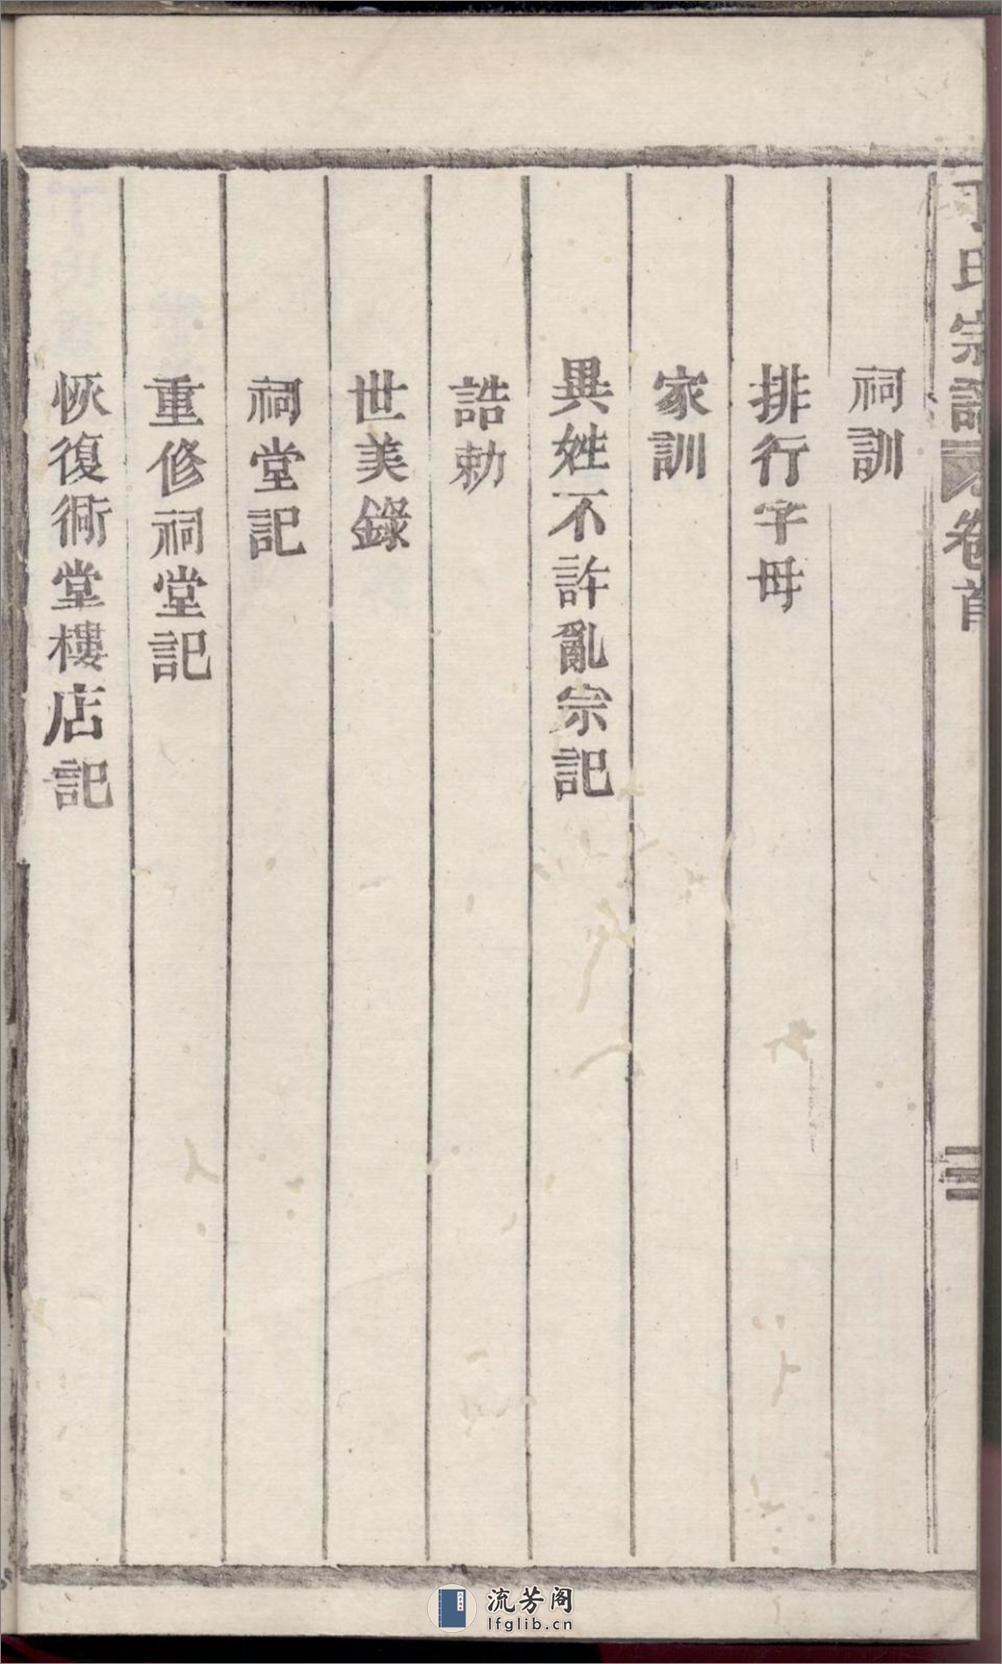 丁氏宗譜 卷首 二
祠訓
排行字母
家訓
異姓不許亂宗記
誥勅
世美錄
祠堂記
重修祠堂記
恢復衕堂樓店記
流芳阁
lfglib.cn